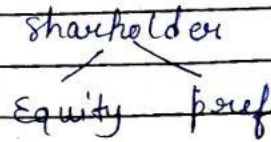 Sharholder
Equity pref